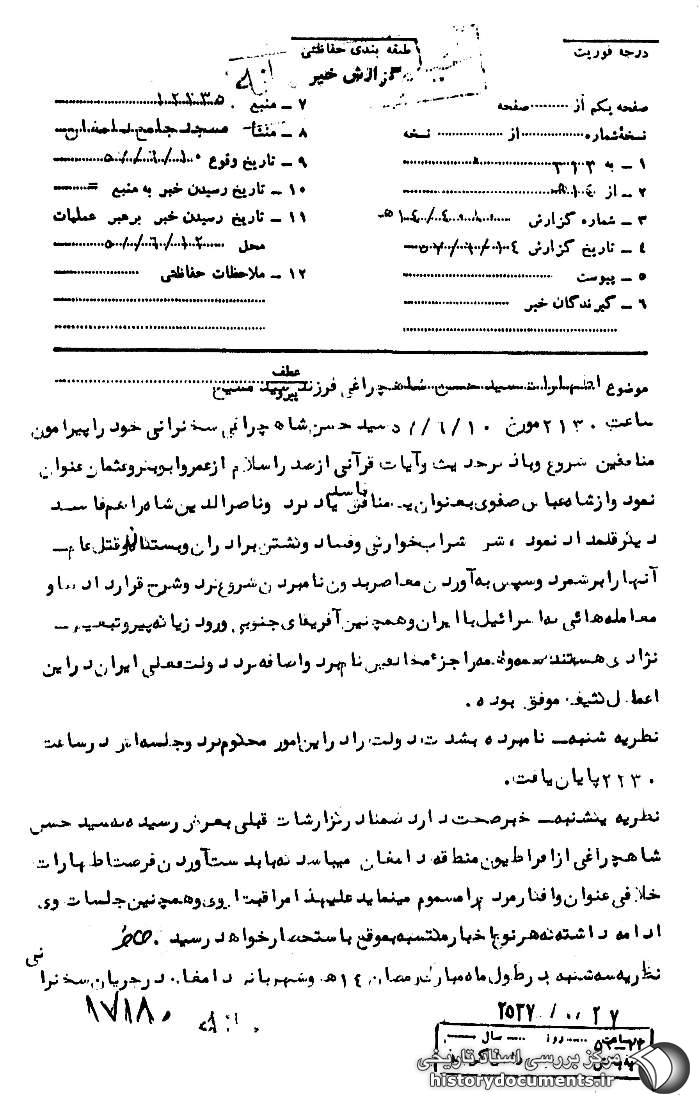 درجه فوریت
طبقه بندی حفاظتی
گزارش خبر
صفحه یکم از ........ صفحه
نسخه شماره ........ از ........ نسخه
۱ ـ به ۳۱۲
۲ ـ از ۵۱۴
۳ ـ شماره گزارش
۴ ـ تاریخ گزارش ۵۷/۶/۱۴
۵ ـ پیوست
۶ ـ گیرندگان خبر
۷ ـ منبع ۱۲۲۳۵
۸ ـ منشأ مسجد جامع دامغان
۹ ـ تاریخ وقوع ۵۷/۶/۱۰
۱۰ ـ تاریخ رسیدن خبر به منبع =
۱۱ ـ تاریخ رسیدن خبر برهبر عملیات
محل ۵۷/۶/۱۲
۱۲ ـ ملاحظات حفاظتی
عطف
پیرو
موضوع اظهارات سید حسن شاهچراغی فرزند سید مسیح
ساعت ۲۱۳۰ مورخ ۵۷/۶/۱۰ سید حسن شاه چراغی سخنرانی خود را پیرامون
منافقین شروع و با ذکر حدیث و آیات قرآنی از صدر اسلام از عمر و ابوبکر و عثمان عنوان
نمود و از شاه عباس صفوی بعنوان یک منافق یاد کرد و ناصرالدین شاه را هم فاسد
دیگر قلمداد نمود ، شرح شرابخوارگی و فساد و کشتن برادران و بستگان و قتل عام ـ
آنها را برشمرد و سپس به آوردن معاصر بدون نام بردن شروع کرد و شرح قراردادها و
معامله هائی که اسرائیل با ایران و همچنین آفریقای جنوبی و رودزیا که پیرو تبعیض ـ
نژادی هستند نموده و همه را جزء مخالفین نام برد و اضافه کرد دولت فعلی ایران در این
اعمال کثیف موفق بوده .
نظریه شنبه ـ نامبرده بشدت دولت را در این امور محکوم کرد و جلسه اش در ساعت
۲۲۳۰ پایان یافت .
نظریه یکشنبه ـ خبر صحت دارد ضمنا در گزارشات قبلی بعرض رسیده که سید حسن
شاهچراغی از افراطیون منطقه دامغان میباشد که با بدست آوردن فرصت اظهارات
خلافی عنوان و افکار مردم را مسموم مینماید علیهذا مراقبت از وی و همچنین جلسات وی
ادامه داشته که هر نوع اخبار مکتسبه بموقع باستحضار خواهد رسید .
نظریه سه شنبه ـ در طول ماه مبارک رمضان ۱۴ هـ و شهربانی دامغان در جریان سخنرا
نی
۲۵۳۷/ ۲۷
مرکز بررسی اسناد تاریخی
historydocuments.ir